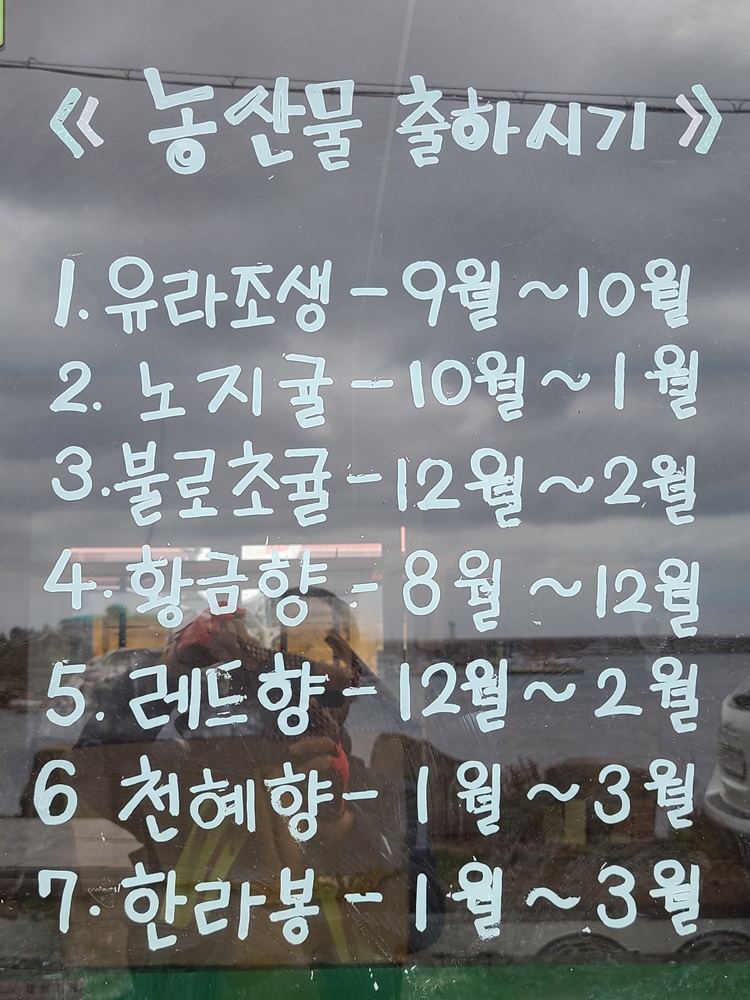 《 농산물 출하시기 》
1. 유라조생 - 9월 ~ 10월
2. 노지귤 - 10월 ~ 1월
3. 불로초귤 - 12월 ~ 2월
4. 황금향 - 8월 ~ 12월
5. 레드향 - 12월 ~ 2월
6 천혜향 - 1월 ~ 3월
7. 한라봉 - 1월 ~ 3월